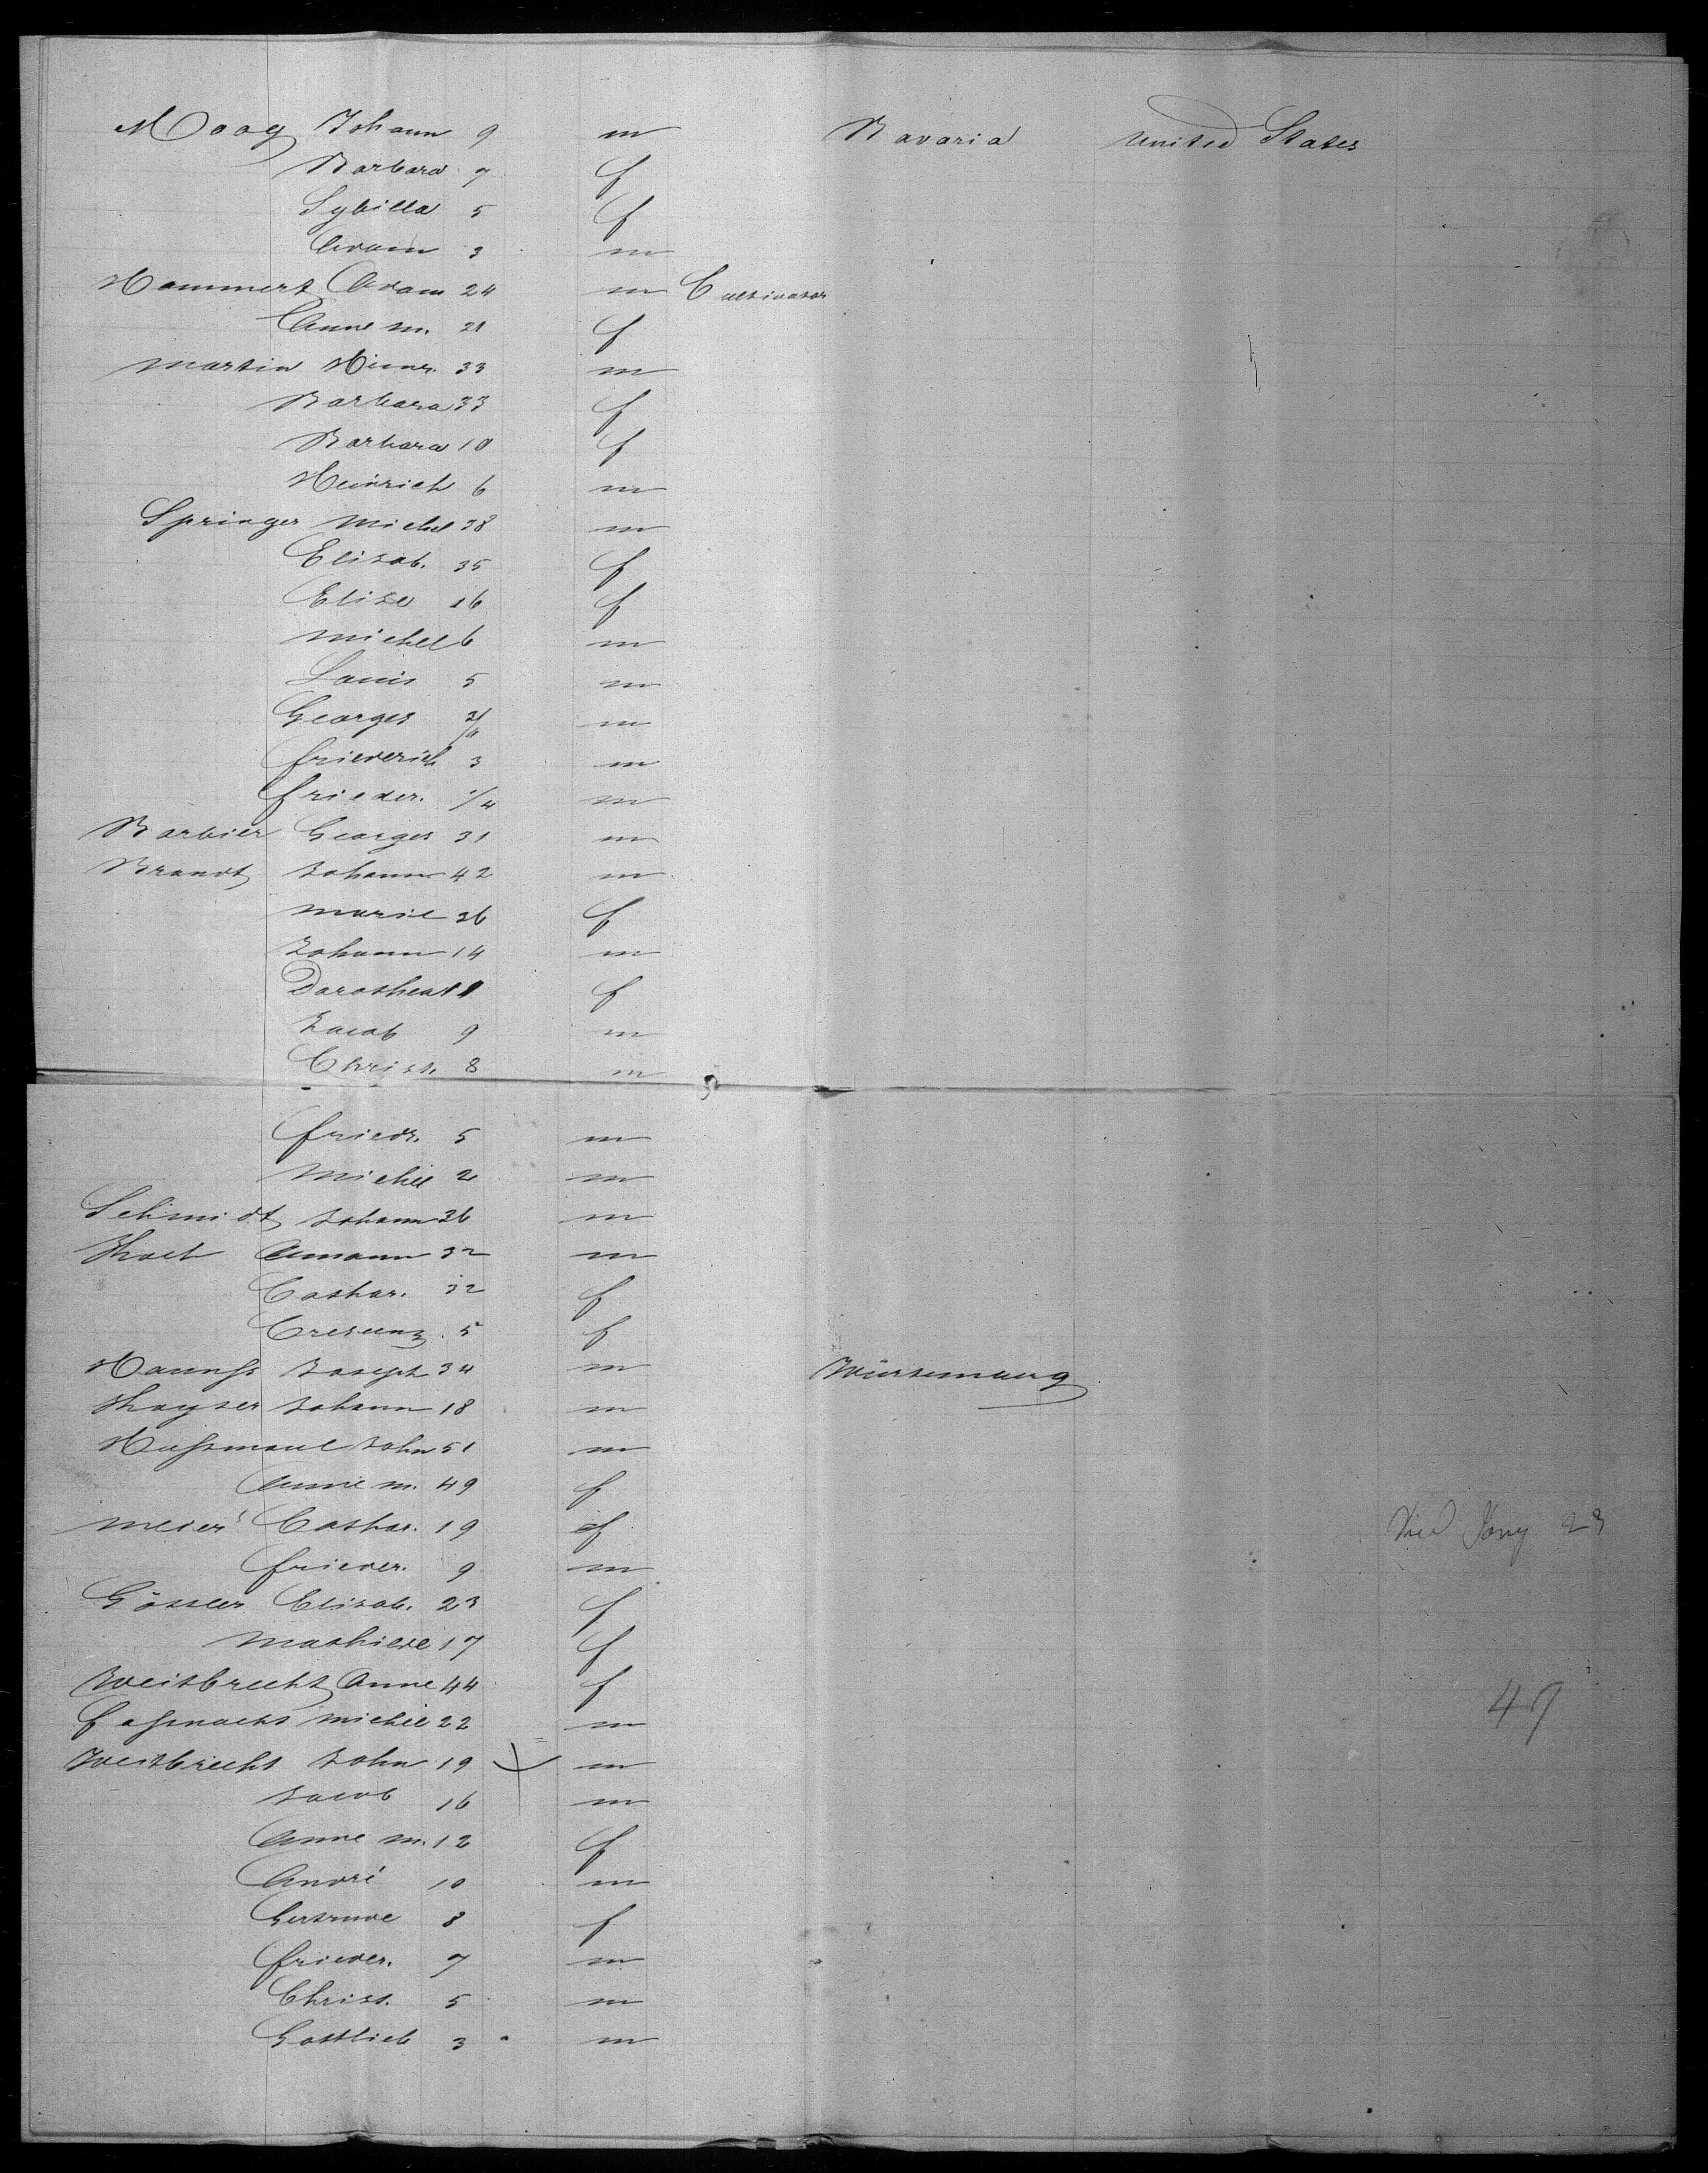 Moog Johann 9 m Bavaria United States
Barbara 7 f
Sybilla 5 f
Adam 3 m
Hammert Adam 24 m Cultivator
Anne M. 21 f
Martin Heinr. 33 m
Barbara 33 f
Barbara 10 f
Heinrich 6 m
Springer Michel 38 m
Elisab. 35 f
Elise 16 f
Michel 6 m
Louis 5 m
Georges m
Friederich 3 m
Frieder. 1/4 m
Barbier Georges 31 m
Brandt Johann 42 m
Marie 36 f
Johann 14 m
Dorothea 11 f
Jacob 9 m
Christ. 8 m
Friedr. 5 m
Michel 2 m
Schmidt Johann 36 m
Koch Amann 32 m
Cathar. 32 f
Crescenz 5 f
Joseph 34 m Würtemberg
Kayser Johann 18 m
Hußmaul John 51 m
Anne M. 49 f
Meier Cathar. 19 f Died Jany 23
Frieder. 9 m
Gössler Elisab. 23 f
Mathilde 17 f
Weitbrecht Anne 44 f
Faßnacht Michel 22 m 47
Weitbrecht John 19 m
Jacob 16 m
Anne M. 12 f
André 10 m
Gertrude 8 f
Frieder. 7 m
Christ. 5 m
Gottlieb 3 m